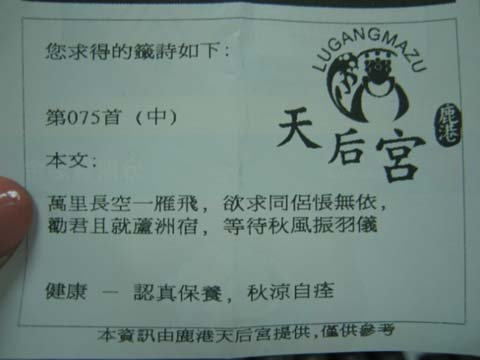 您求得的籤詩如下:
LUGANGMAZU
鹿港
天后宮
第075首 (中)
本文:
萬里長空一雁飛, 欲求同侶悵無依,
勸君且就蘆洲宿, 等待秋風振羽儀
健康 — 認真保養, 秋涼自痊
本資訊由鹿港天后宮提供,僅供參考